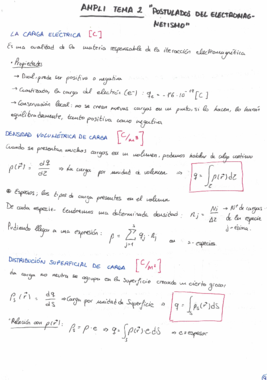 AMPLI TEMA 2 "POSTULADOS DEL ELECTROMAG-
NETISMO"
LA CARGA ELÉCTRICA [C]
Es una cualidad de la materia responsable de la iteracción electromagnética
· Propiedades
→ Dual: puede ser positiva o negativa
→ Cuantizada, la carga del electrón (e⁻): qₑ = -1'6·10⁻¹⁹ [C]
→ Conservación local: no se crean nuevas cargas en un punto, si lo hacen, lo hacen
equilibradamente, tanto positiva como negativa
DENSIDAD VOLUMÉTRICA DE CARGA [C/m³]
Cuando se presentan muchas cargas en un volumen, podemos hablar de carga continua
ρ(r⃗) = dq/dτ ⇒ La carga por unidad de volumen ⇒ q = ∫ ρ(r⃗) dτ
⊛ Especies: los tipos de cargas presentes en el volumen
De cada especie tendremos una determinada densidad: Nj = Nj/Δτ → Nº de cargas
de la especie
j-ésima.
Pudiendo llegar a una expresión: ρ = Σ qj · Nj
DISTRIBUCIÓN SUPERFICIAL DE CARGA [C/m²]
La carga no neutra se agrupa en la superficie creando un cierto grosor
ρs(r⃗) = dq/ds → Carga por unidad de superficie ⇒ q = ∫ ρs(r⃗) ds
· Relación con ρ(r⃗): ρs = ρ·e ⇒ q = ∫ ρ(r⃗) e ds ⇒ e = espesor